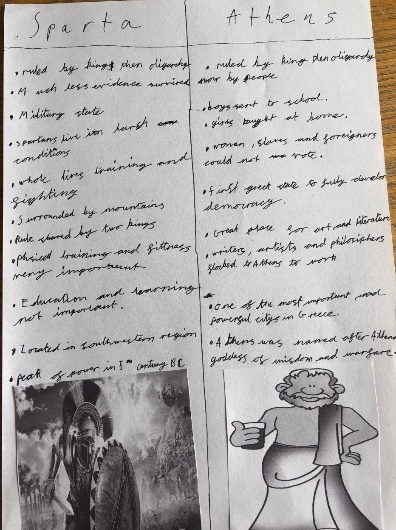 Sparta
• ruled by kings then oligarchy
• Much less evidence survived
• Military state
• Spartans live in harsh
conditions
• whole lives training and
fighting
• Surrounded by mountains
• Rule shared by two kings
• phsical training and fittness
very important
• Education and learning
not important.
• Located in southwestern region
• peak of power in 5th century BC
Athens
• ruled by king then oligarchy
now by people
• boys sent to school.
• girls taught at home.
• women, slaves and foreigners
could not vote.
• First greek state to fully develop
democracy.
• Great place for art and literature
• writers, artists and philosiphers
flocked to Athens to work
• one of the most important and
powerful citys in Greece
• Athens was named after Athena
goddess of wisdom and warfare.